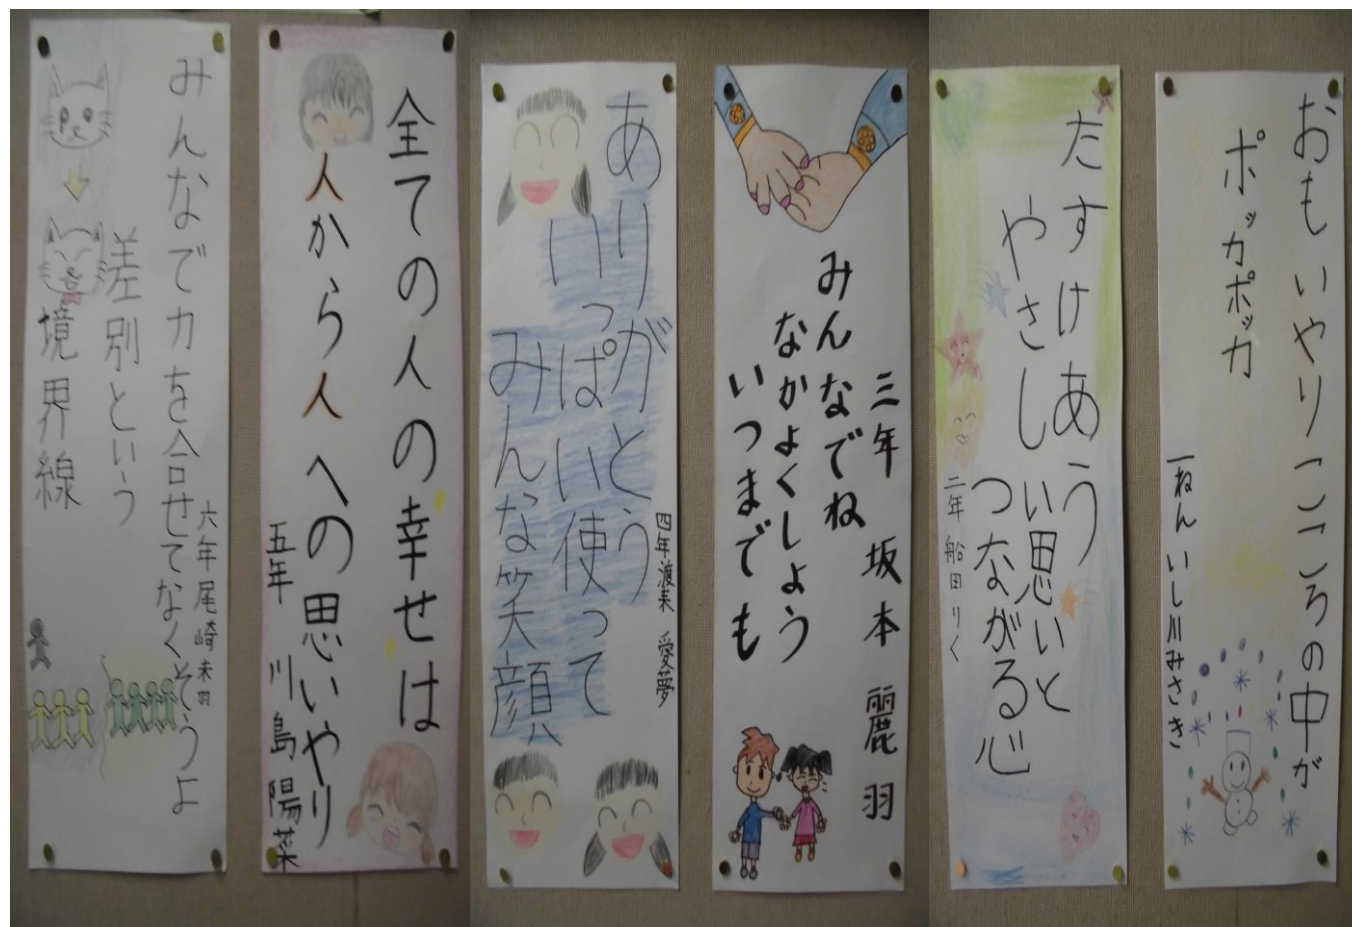 おもいやりこころの中が
ポッカポッカ
一ねん いし川みさき
たすけあう
やさしい思いと
つながる心
二年 船田りく
三年 坂本 麗羽
みんなでね
なかよくしよう
いつまでも
ありがとう
いっぱい使って
みんな笑顔
四年 渡未 愛夢
全ての人の幸せは
人から人への思いやり
五年 川島陽菜
みんなで力を合せてなくそうよ
差別という
境界線
六年 尾崎未羽